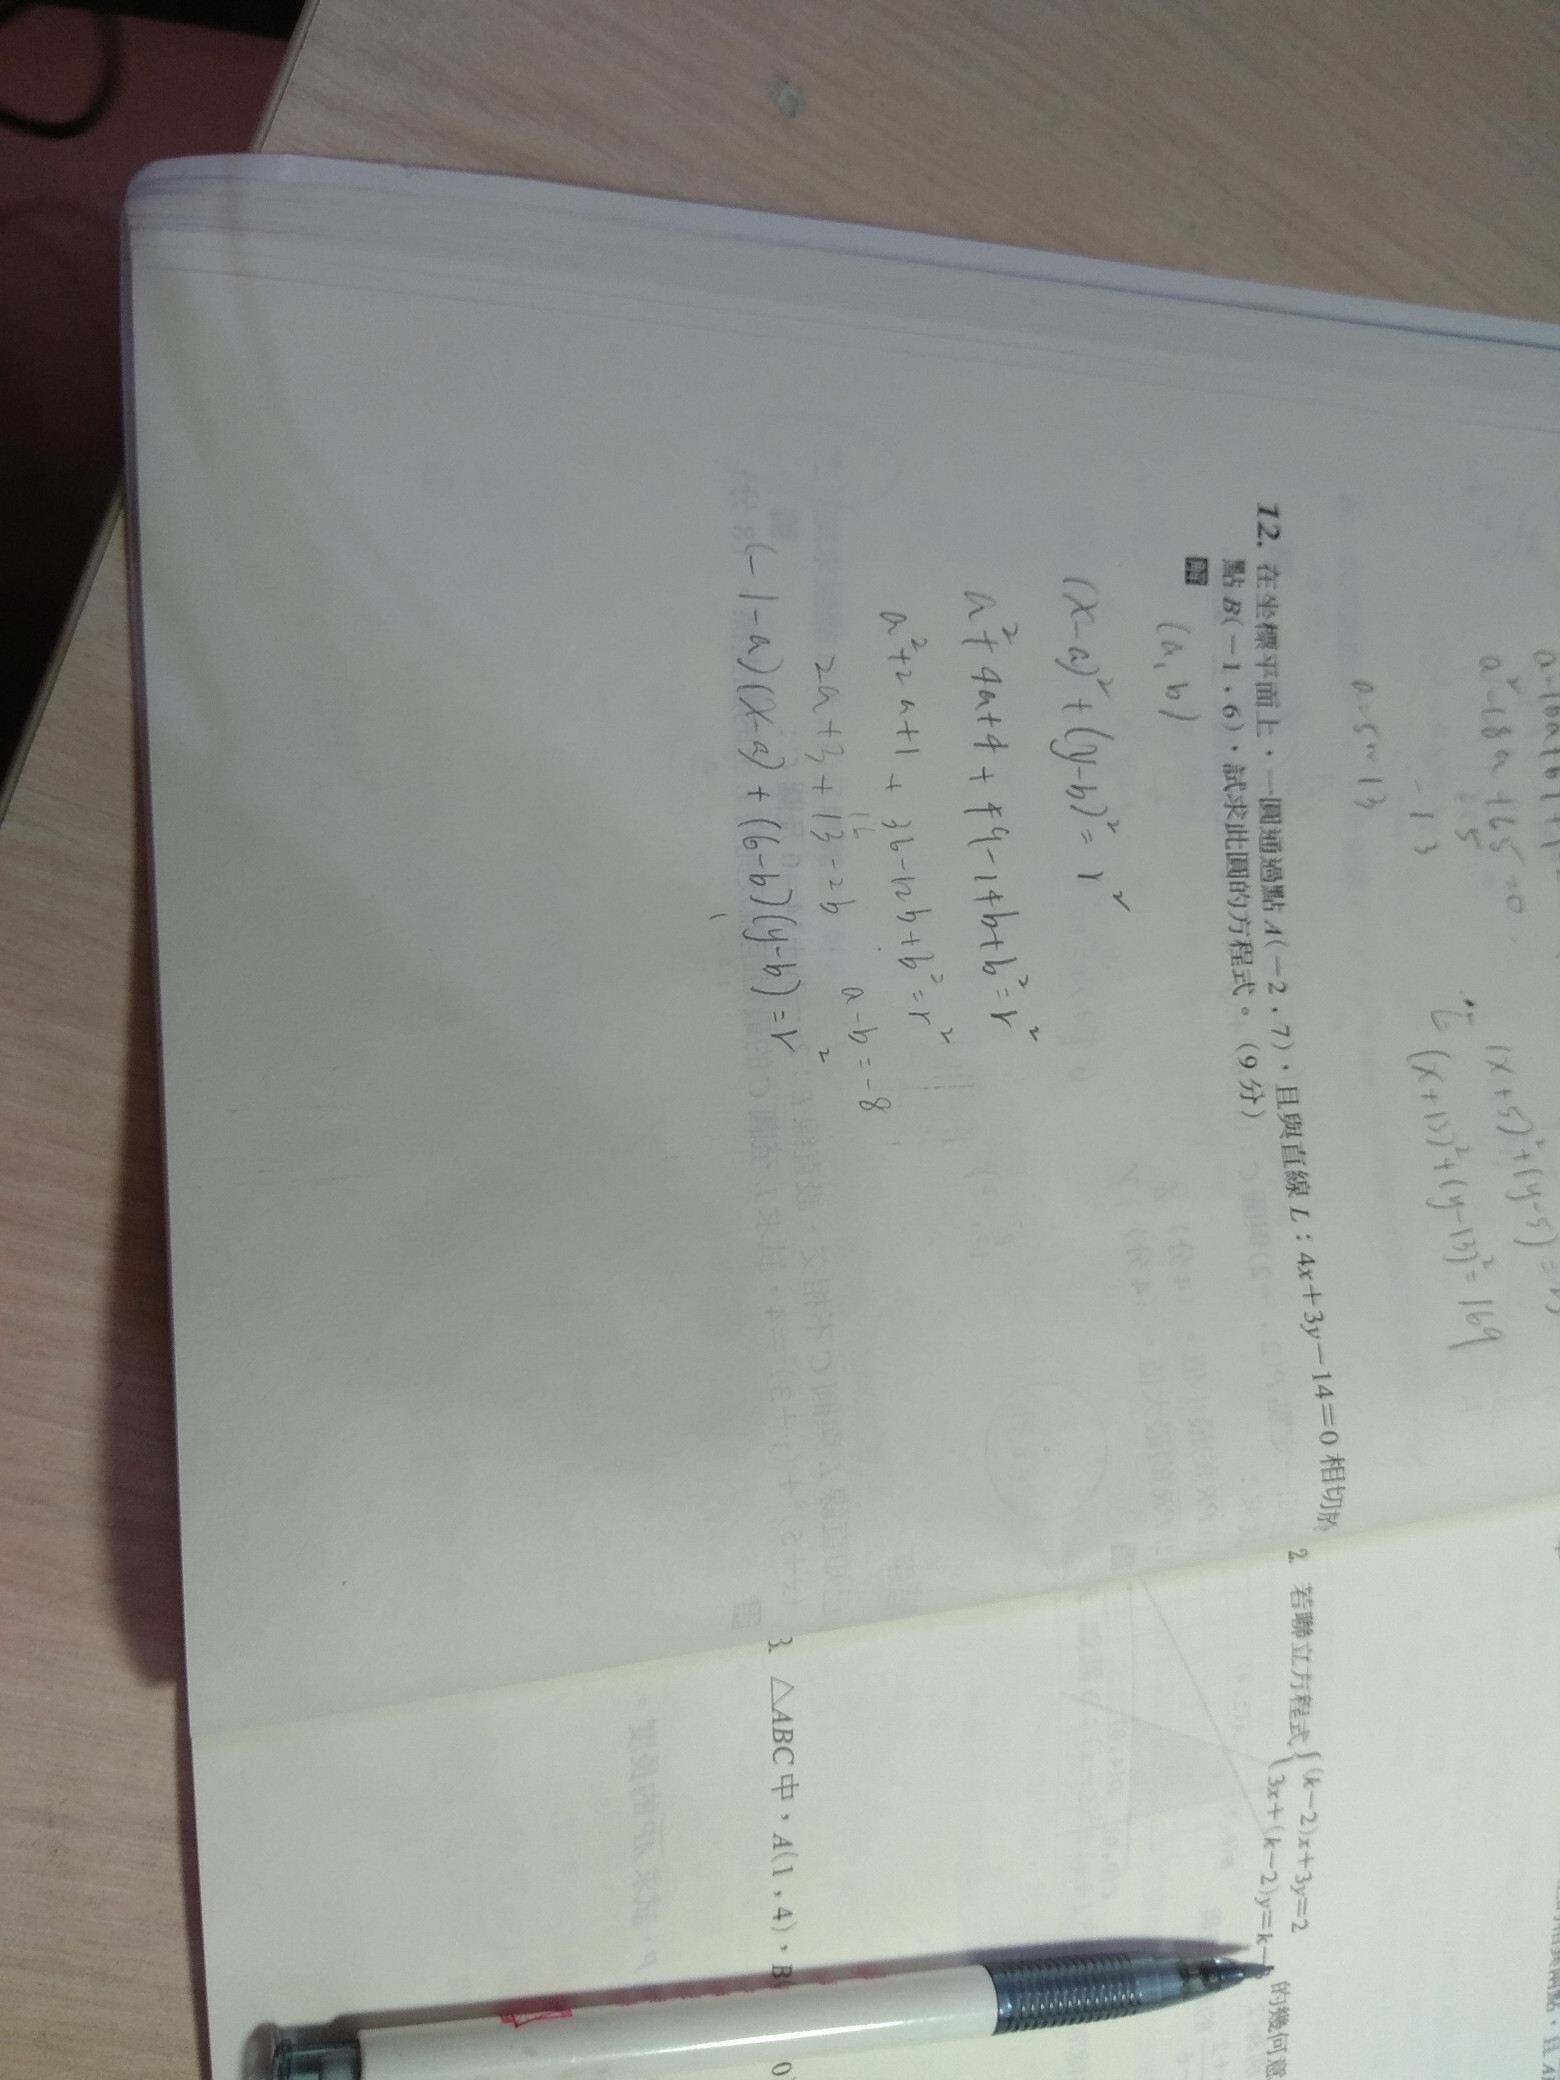 a²-18a+65=0
-5
-13
a=5or13
(x+5)²+(y-5)²=25
(x+13)²+(y-13)²=169
12. 在坐標平面上，一圓通過點A(-2，7)，且與直線L：4x+3y-14=0相切於
點B(-1，6)，試求此圓的方程式。(9分)
解
(a,b)
(x-a)²+(y-b)²=r²
a²+4a+4+49-14b+b²=r²
a²+2a+1+36-12b+b²=r²
2a+3+13-2b
16
a-b=-8
(-1-a)(x-a)+(6-b)(y-b)=r²
2. 若聯立方程式{(k-2)x+3y=2
3x+(k-2)y=k-
的幾何意
3. △ABC中，A(1，4)，B(
0)